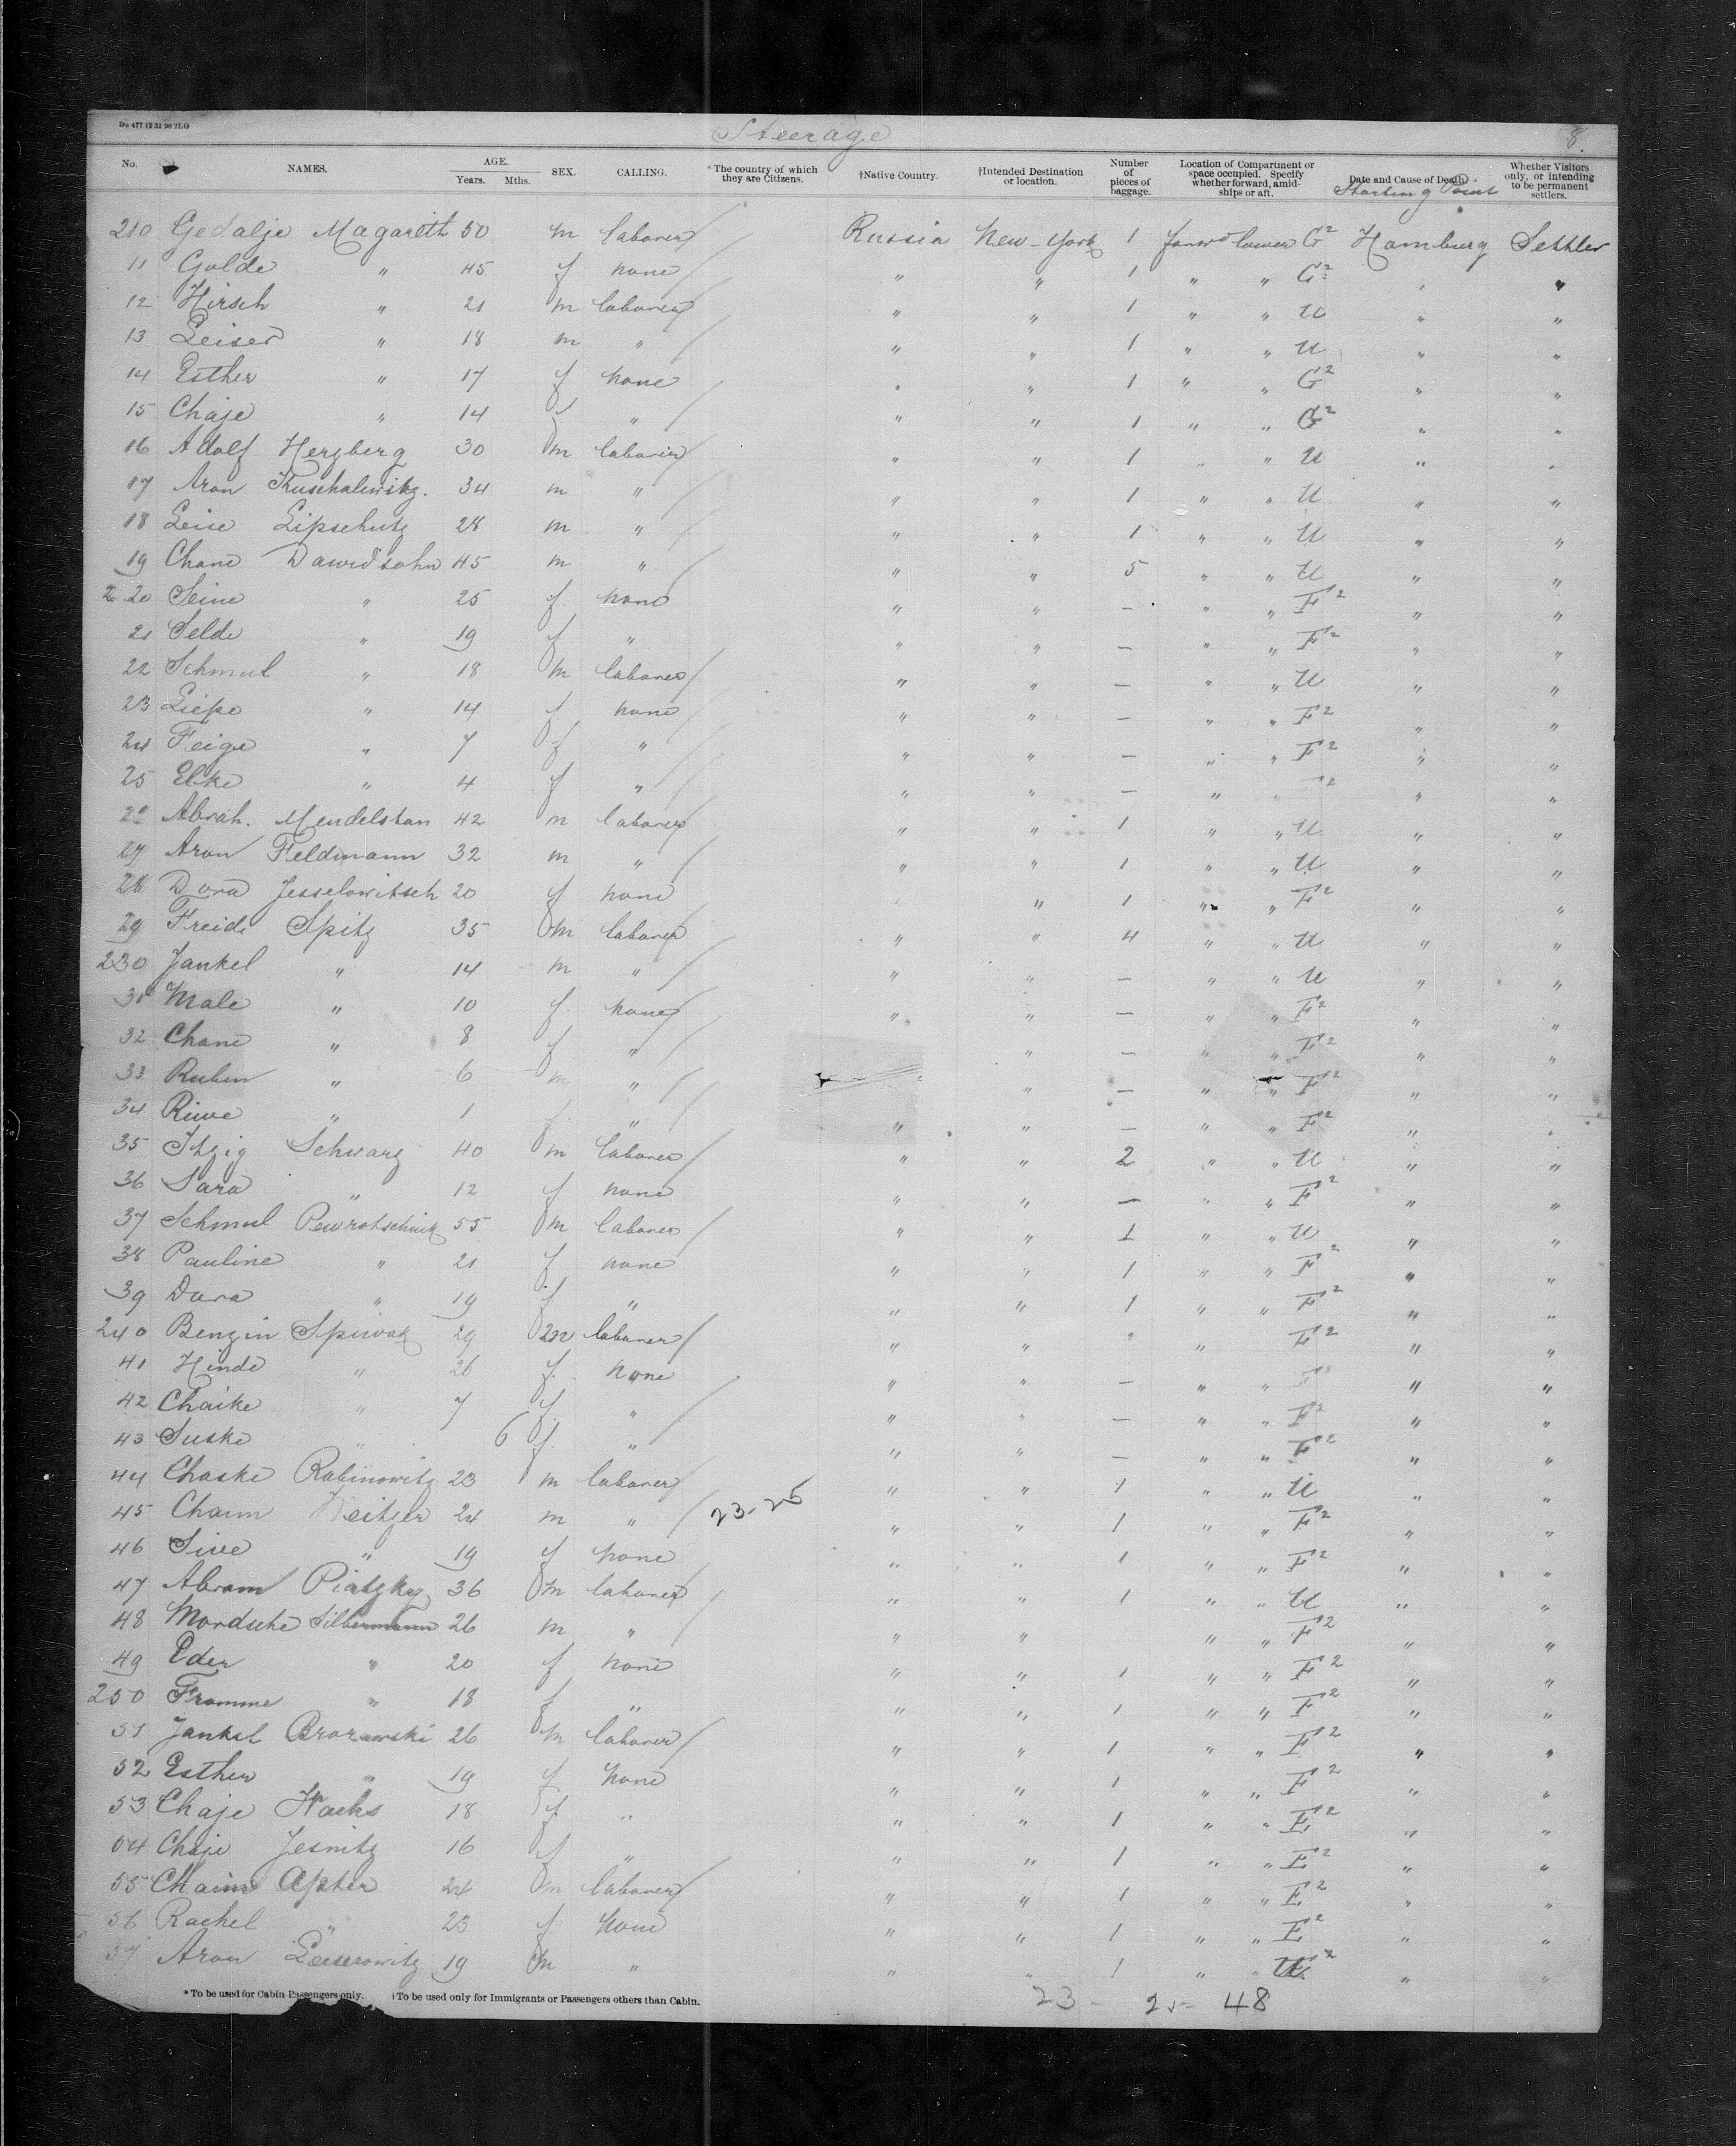 Do 477 12 31 90 2LG
Steerage 8.
No. NAMES. AGE. Years. Mths. SEX. CALLING. *The country of which they are Citizens. †Native Country. †Intended Destination or location. Number of pieces of baggage. Location of Compartment or space occupied. Specify whether forward, amidships or aft. Date and Cause of Death. Starting Point Whether Visitors only, or intending to be permanent settlers.
210 Gedalje Magareth 50 m laborer Russia New-York 1 forwd lower G2 Hamburg Settler
11 Golde " 45 f none " " 1 " " G2 " "
12 Hirsch " 21 m laborer " " 1 " " U " "
13 Leiser " 18 m " " " 1 " " U " "
14 Esther " 17 f none " " 1 " " G2 " "
15 Chaje " 14 f " " " 1 " " G2 " "
16 Adolf Herzberg 30 m laborer " " 1 " " U " "
17 Aron 34 m " " " 1 " " U " "
18 Leise Lipschutz 28 m " " " 1 " " U " "
19 Chane Dawidsohn 45 m " " " 5 " " U " "
220 Seine " 25 f none " " - " " F2 " "
21 Selde " 19 f " " " - " " F2 " "
22 Schmul " 18 m laborer " " - " " U " "
23 Liepe " 14 f none " " - " " F2 " "
24 Feige " 7 f " " " - " " F2 " "
25 Elke " 4 f " " " - " " 2 " "
Abrah. Mendelsohn 42 m laborer " " 1 " " U " "
27 Aron Feldmann 32 m " " " 1 " " U " "
28 Dora Jesselowitsch 20 f none " " 1 " " F2 " "
29 Freide Spitz 35 m laborer " " 4 " " U " "
230 Jankel " 14 m " " " - " " U " "
31 Male " 10 f none " " - " " F2 " "
32 Chane " 8 f " " - " " F2 " "
33 Ruben " 6 m " " " - " " F2 " "
34 Riwe " 1 f " " " - " " F2 " "
35 Itzig Schwarz 40 m laborer " " 2 " " U " "
36 Sara " 12 f none " " - " " F2 " "
37 Schmul 55 m laborer " " 1 " " U " "
38 Pauline " 21 f none " " 1 " " F2 " "
39 Dora " 19 f " " " 1 " " F2 " "
240 Benzin Spiwak 29 m laborer " " " F2 " "
41 Hinde " 26 f none " " - " " F2 " "
42 Chaike " 7 f " " " - " " F2 " "
43 Suske " 6 f " " " - " " F2 " "
44 Chaske Rabinowitz 23 m laborer " " 1 " " U " "
45 Chaim Weitzer 24 m " 23-25 " " 1 " " F2 " "
46 Sive " 19 f none " " 1 " " F2 " "
47 Abram Piatzky 36 m laborer " " 1 " " U " "
48 Mordsche Silbermann 26 m " " " " " F2 " "
49 Eder " 20 f none " " 1 " " F2 " "
250 Fromme " 18 f " " " 1 " " F2 " "
51 Jankel 26 m laborer " " 1 " " F2 " "
52 Esther " 19 f none " " 1 " " F2 " "
53 Chaje Wachs 18 f " " " 1 " " E2 " "
54 Chaje Jesnitz 16 f " " " 1 " " E2 " "
55 Chaim Apter 24 m laborer " " 1 " " E2 " "
56 Rachel " 23 f none " " 1 " " E2 " "
57 Aron Leiserowitz 19 m " " " 1 " " " "
*To be used for Cabin Passengers only. †To be used only for Immigrants or Passengers others than Cabin.
23 - 25 - 48